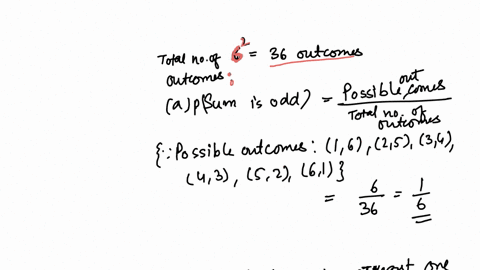 Total no. of 6² = 36 outcomes
outcomes:
(a) P(Sum is odd) = Possible outcomes / Total no. of outcomes
{∵ Possible outcomes : (1,6), (2,5), (3,4),
(4,3), (5,2), (6,1)}
= 6/36 = 1/6
one